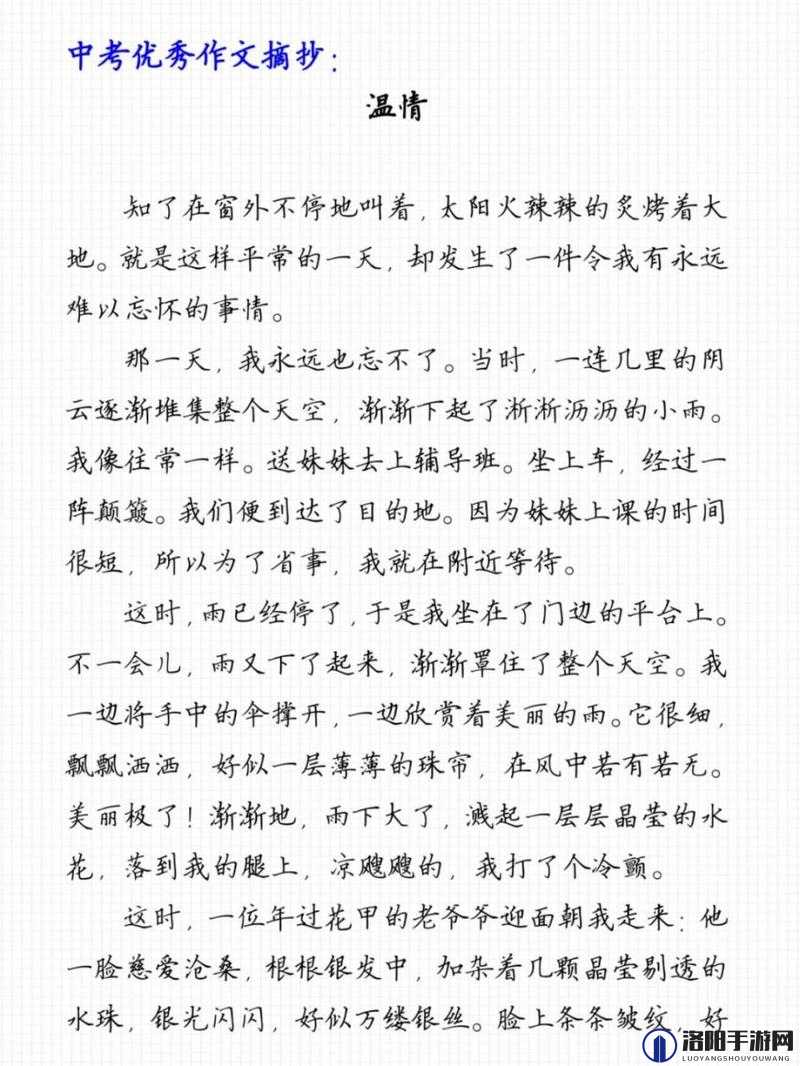 中考优秀作文摘抄：
温情
知了在窗外不停地叫着，太阳火辣辣的炙烤着大
地。就是这样平常的一天，却发生了一件令我有永远
难以忘怀的事情。
那一天，我永远也忘不了。当时，一连几里的阴
云逐渐堆集整个天空，渐渐下起了淅淅沥沥的小雨。
我像往常一样。送妹妹去上辅导班。坐上车，经过一
阵颠簸。我们便到达了目的地。因为妹妹上课的时间
很短，所以为了省事，我就在附近等待。
这时，雨已经停了，于是我坐在了门边的平台上。
不一会儿，雨又下了起来，渐渐罩住了整个天空。我
一边将手中的伞撑开，一边欣赏着美丽的雨。它很细，
飘飘洒洒，好似一层薄薄的珠帘，在风中若有若无。
美丽极了！渐渐地，雨下大了，溅起一层层晶莹的水
花，落到我的腿上，凉飕飕的，我打了个冷颤。
这时，一位年过花甲的老爷爷迎面朝我走来：他
一脸慈爱沧桑，根根银发中，加杂着几颗晶莹剔透的
水珠，银光闪闪，好似万缕银丝。脸上条条皱纹，好
洛阳手游网
LUOYANGSHOUYOUWANG